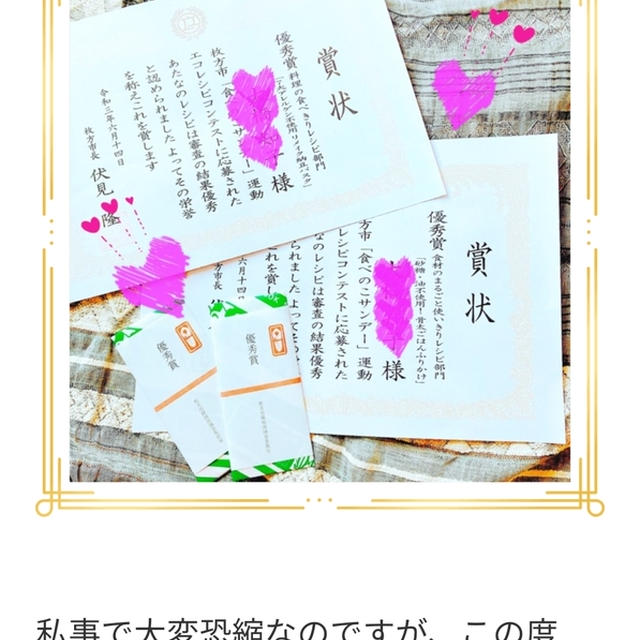 賞状
優秀賞 料理の食べきりレシピ部門
様
枚方市「食べのこサンデー」運動
エコレシピコンテストに応募された
あなたのレシピは審査の結果優秀
と認められました よってその栄誉
を称えこれを賞します
令和三年六月十四日
枚方市長 伏見 隆
賞状
優秀賞 食材のまるごと使いきりレシピ部門
「砂糖・油不使用!骨太ごはんふりかけ」
様
方市「食べのこサンデー」運動
レシピコンテストに応募された
なのレシピは審査の結果優秀
られました よってそ
これを賞し
六月十四日
優秀賞
優秀賞
私事で大変恐縮なのですが、この度